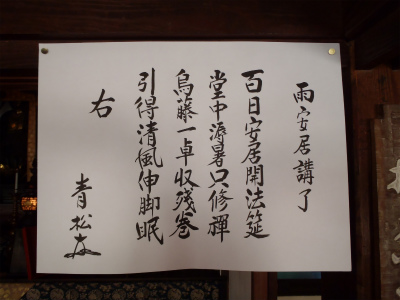 雨安居講了
百日安居開法筵
堂中溽暑只修禅
烏藤一卓収残巻
引得清風伸脚眠
右
青松